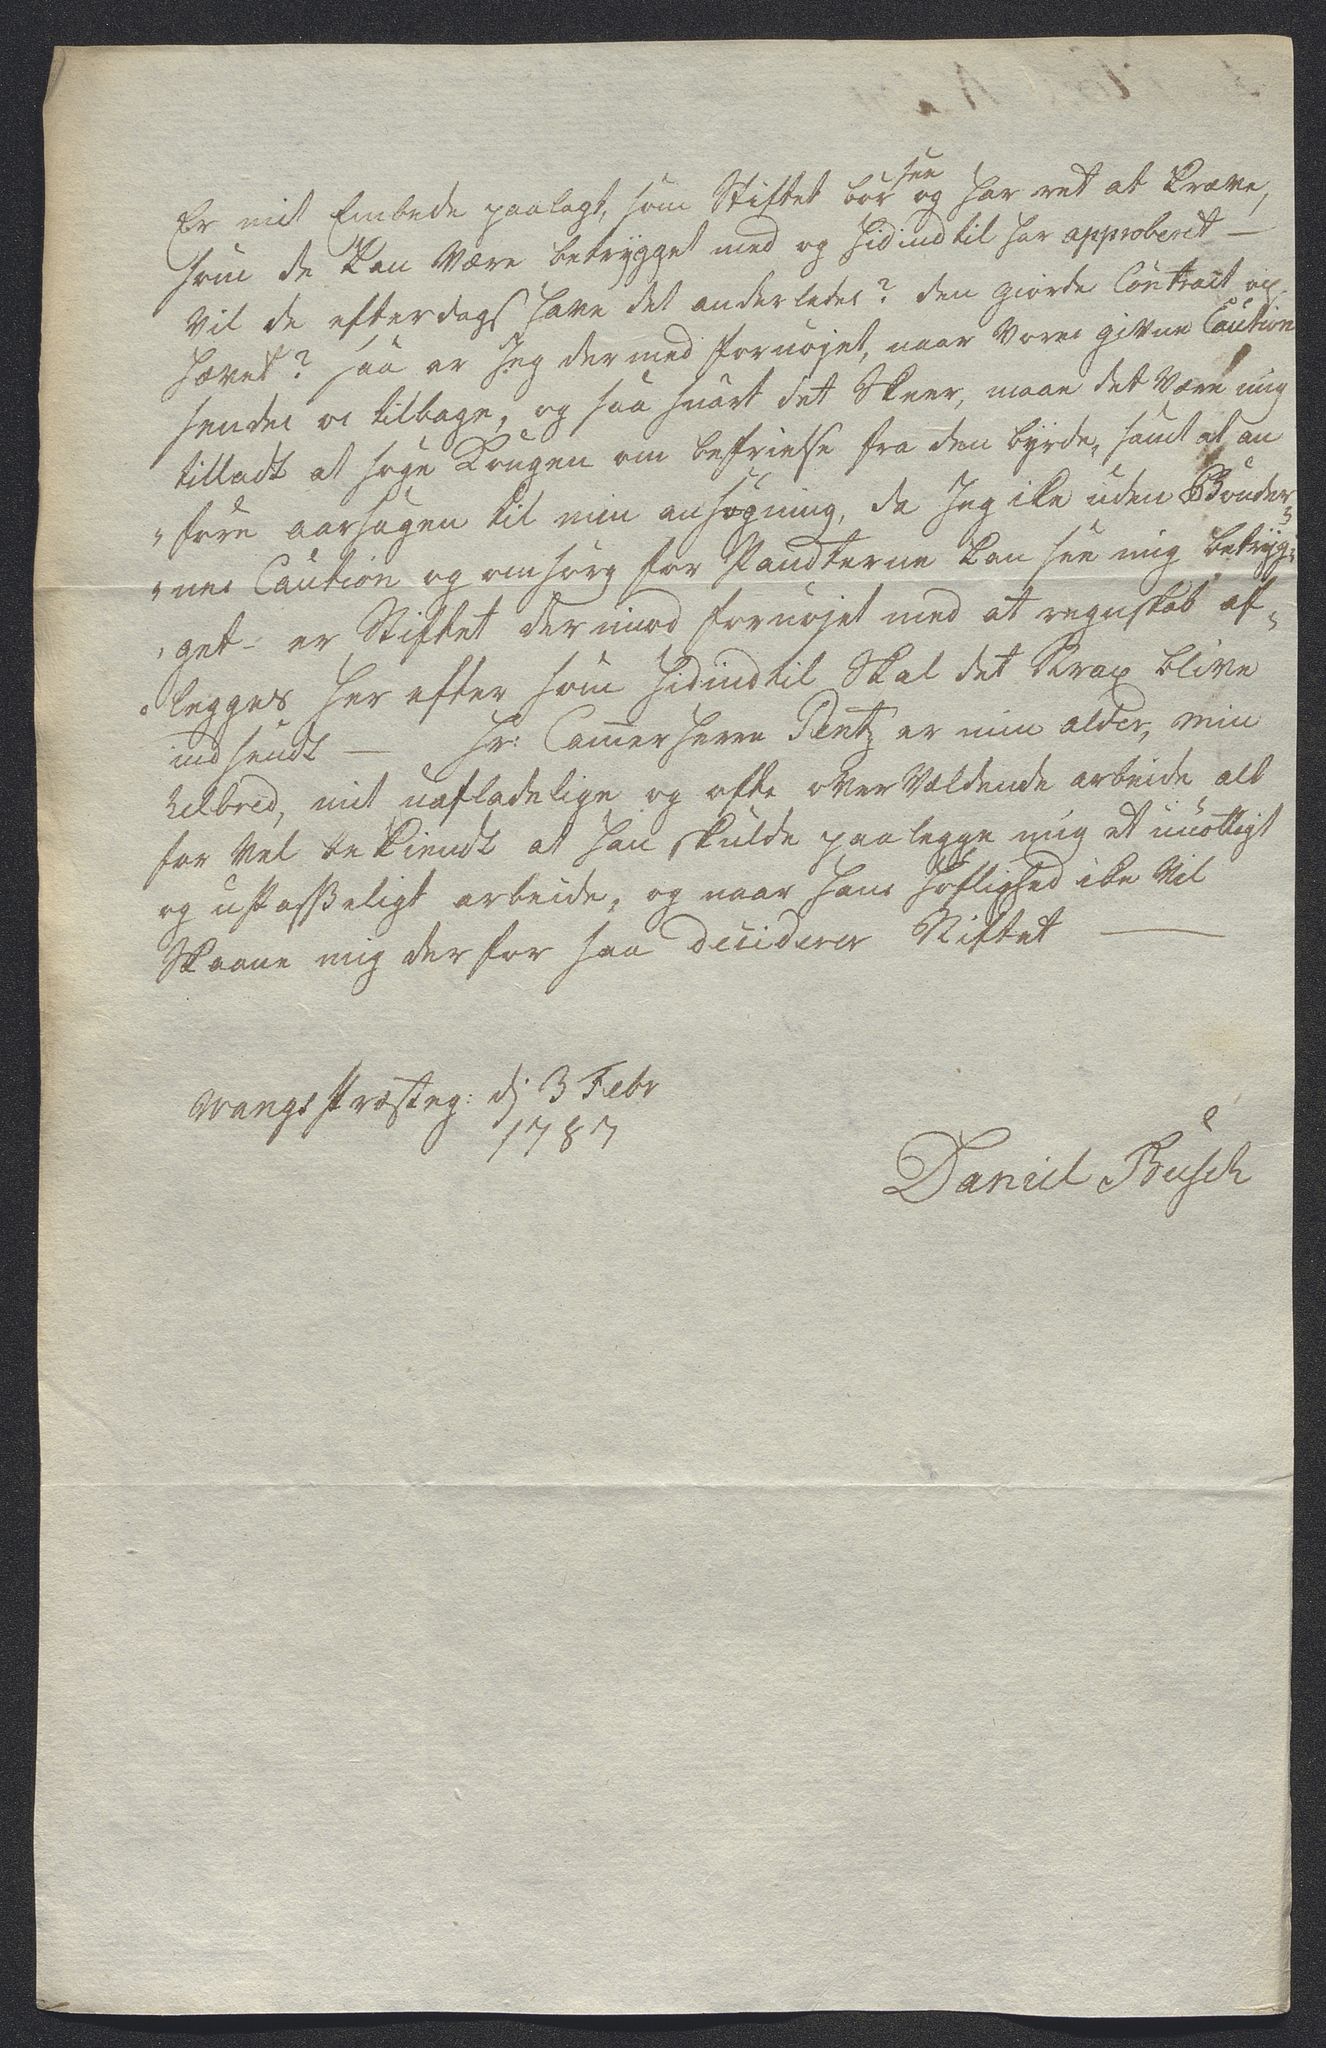 Er mit Embede paalagt, som Stiftet bør see og har ret at kræve,
som de kan være betrygget med og hidindtil har approberet —
vil de efterdags have det anderledes? den giorde Contract op-
hævet? saa er Jeg dermed fornøjet, naar vores givne Caution
sendes os tilbage, og saa snart det skeer, maae det være mig
tilladt at søge Kongen om befrielse fra den byrde, samt at an
føre aarsagen til min ansøgning, da Jeg ike uden Bønder-
nes Caution og omsorg for Pandterne kan see mig betryg-
get - er Stiftet der imod fornøjet med at regnskab af-
legges her efter som hidindtil skal det strax blive
indsendt — Hr: Cammerherre Pentz er min alder, min
helbred, mit uafladelige og ofte overvældende arbeide alt
for vel bekiendt at han skulde paalegge mig et unøttigt
og upasseligt arbeide, og naar hans høflighed ike vil
skaane mig derfor saa deciderer Stiftet —
Wangs Præsteg: dj 3 Febr
1787
Daniel Büsch